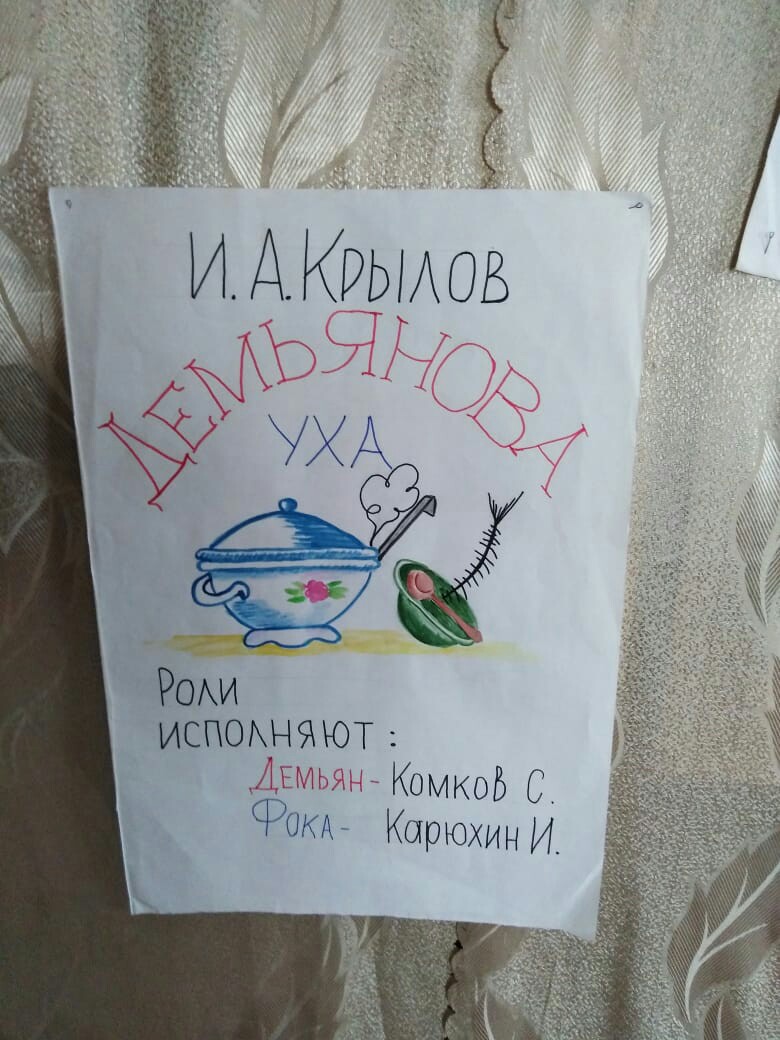 И. А. Крылов
Демьянова
уха
Роли
исполняют:
Демьян - Комков С.
Фока - Карюхин И.